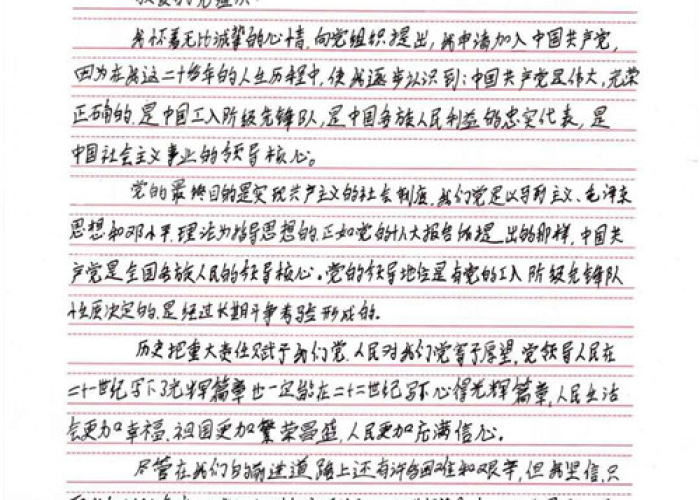 敬爱的党组织:
我怀着无比诚挚的心情,向党组织提出,我申请加入中国共产党,
因为在我这二十馀年的人生历程中,使我逐步认识到:中国共产党是伟大、光荣
正确的,是中国工人阶级先锋队,是中国各族人民利益的忠实代表,是
中国社会主义事业的领导核心。
党的最终目的是实现共产主义的社会制度,我们党是以马列主义、毛泽东
思想和邓小平理论为指导思想的,正如党的十八大报告所提出的那样,中国共
产党是全国各族人民的领导核心。党的领导地位是有党的工人阶级先锋队
性质决定的,是经过长期斗争考验形成的。
历史把重大责任赋于我们党,人民对我们党寄予厚望,党领导人民在
二十一世纪写下了光辉篇章也一定能在二十二世纪写下心得光辉篇章,人民生活
会更加幸福,祖国更加繁荣昌盛,人民更加充满信心。
尽管在我们的前进道路上还有许多困难和艰辛,但我坚信,只